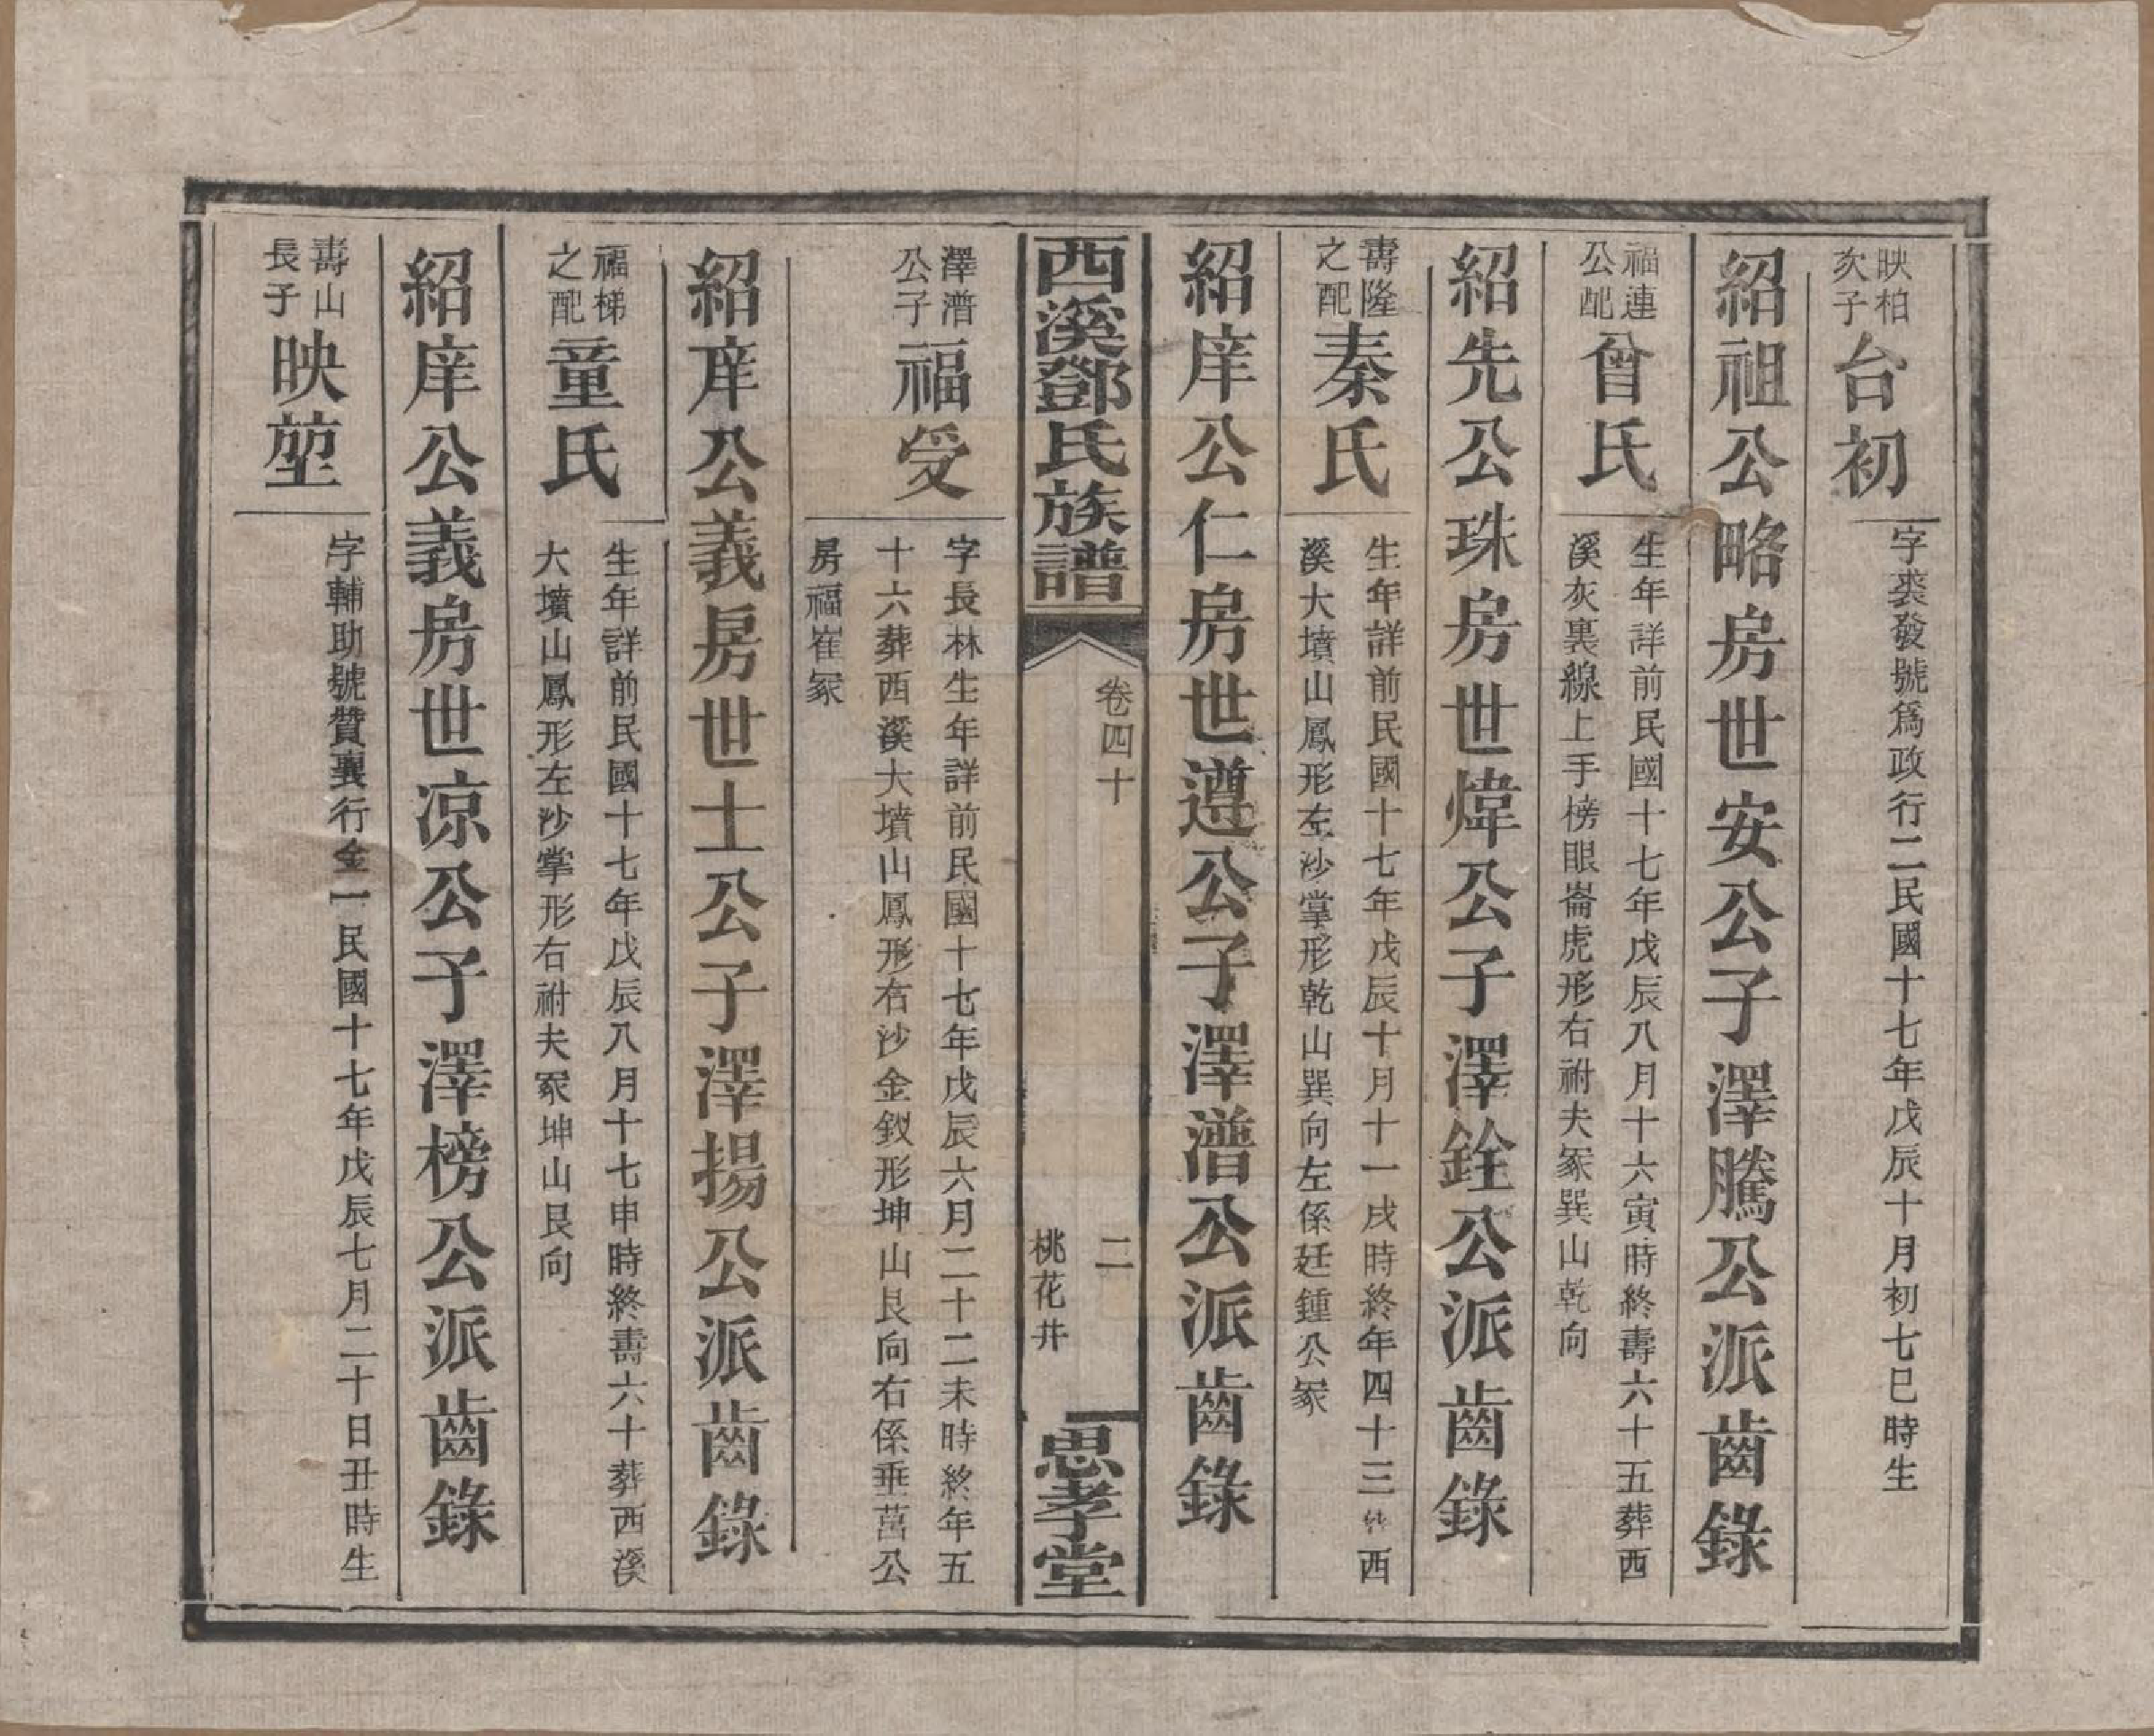 映柏
次子
台初
字裘發號爲政行二民國十七年戊辰十月初七巳時生
紹祖公略房世安公子澤騰公派齒錄
福連
公配
曾氏
生年詳前民國十七年戊辰八月十六寅時終壽六十五葬西
溪灰裏線上手榜眼崙虎形右祔夫冢巽山乾向
紹先公珠房世煒公子澤銓公派齒錄
壽隆
之配
秦氏
生年詳前民國十七年戊辰十月十一戌時終年四十三 西
溪大墳山鳳形左沙掌形乾山巽向左係廷鍾公冢
紹庠公仁房世遵公子澤潛公派齒錄
西溪鄧氏族譜
卷四十
二
桃花井
思孝堂
澤潛
公子
福受
字長林生年詳前民國十七年戊辰六月二十二未時終年五
十六葬西溪大墳山鳳形右沙金釵形坤山艮向右係垂菖公
房福崔冢
紹庠公義房世士公子澤揚公派齒錄
福梯
之配
童氏
生年詳前民國十七年戊辰八月十七申時終壽六十葬西溪
大墳山鳳形左沙掌形右祔夫冢坤山艮向
紹庠公義房世凉公子澤榜公派齒錄
壽山
長子
映堃
字輔助號贊襄行金一民國十七年戊辰七月二十日丑時生